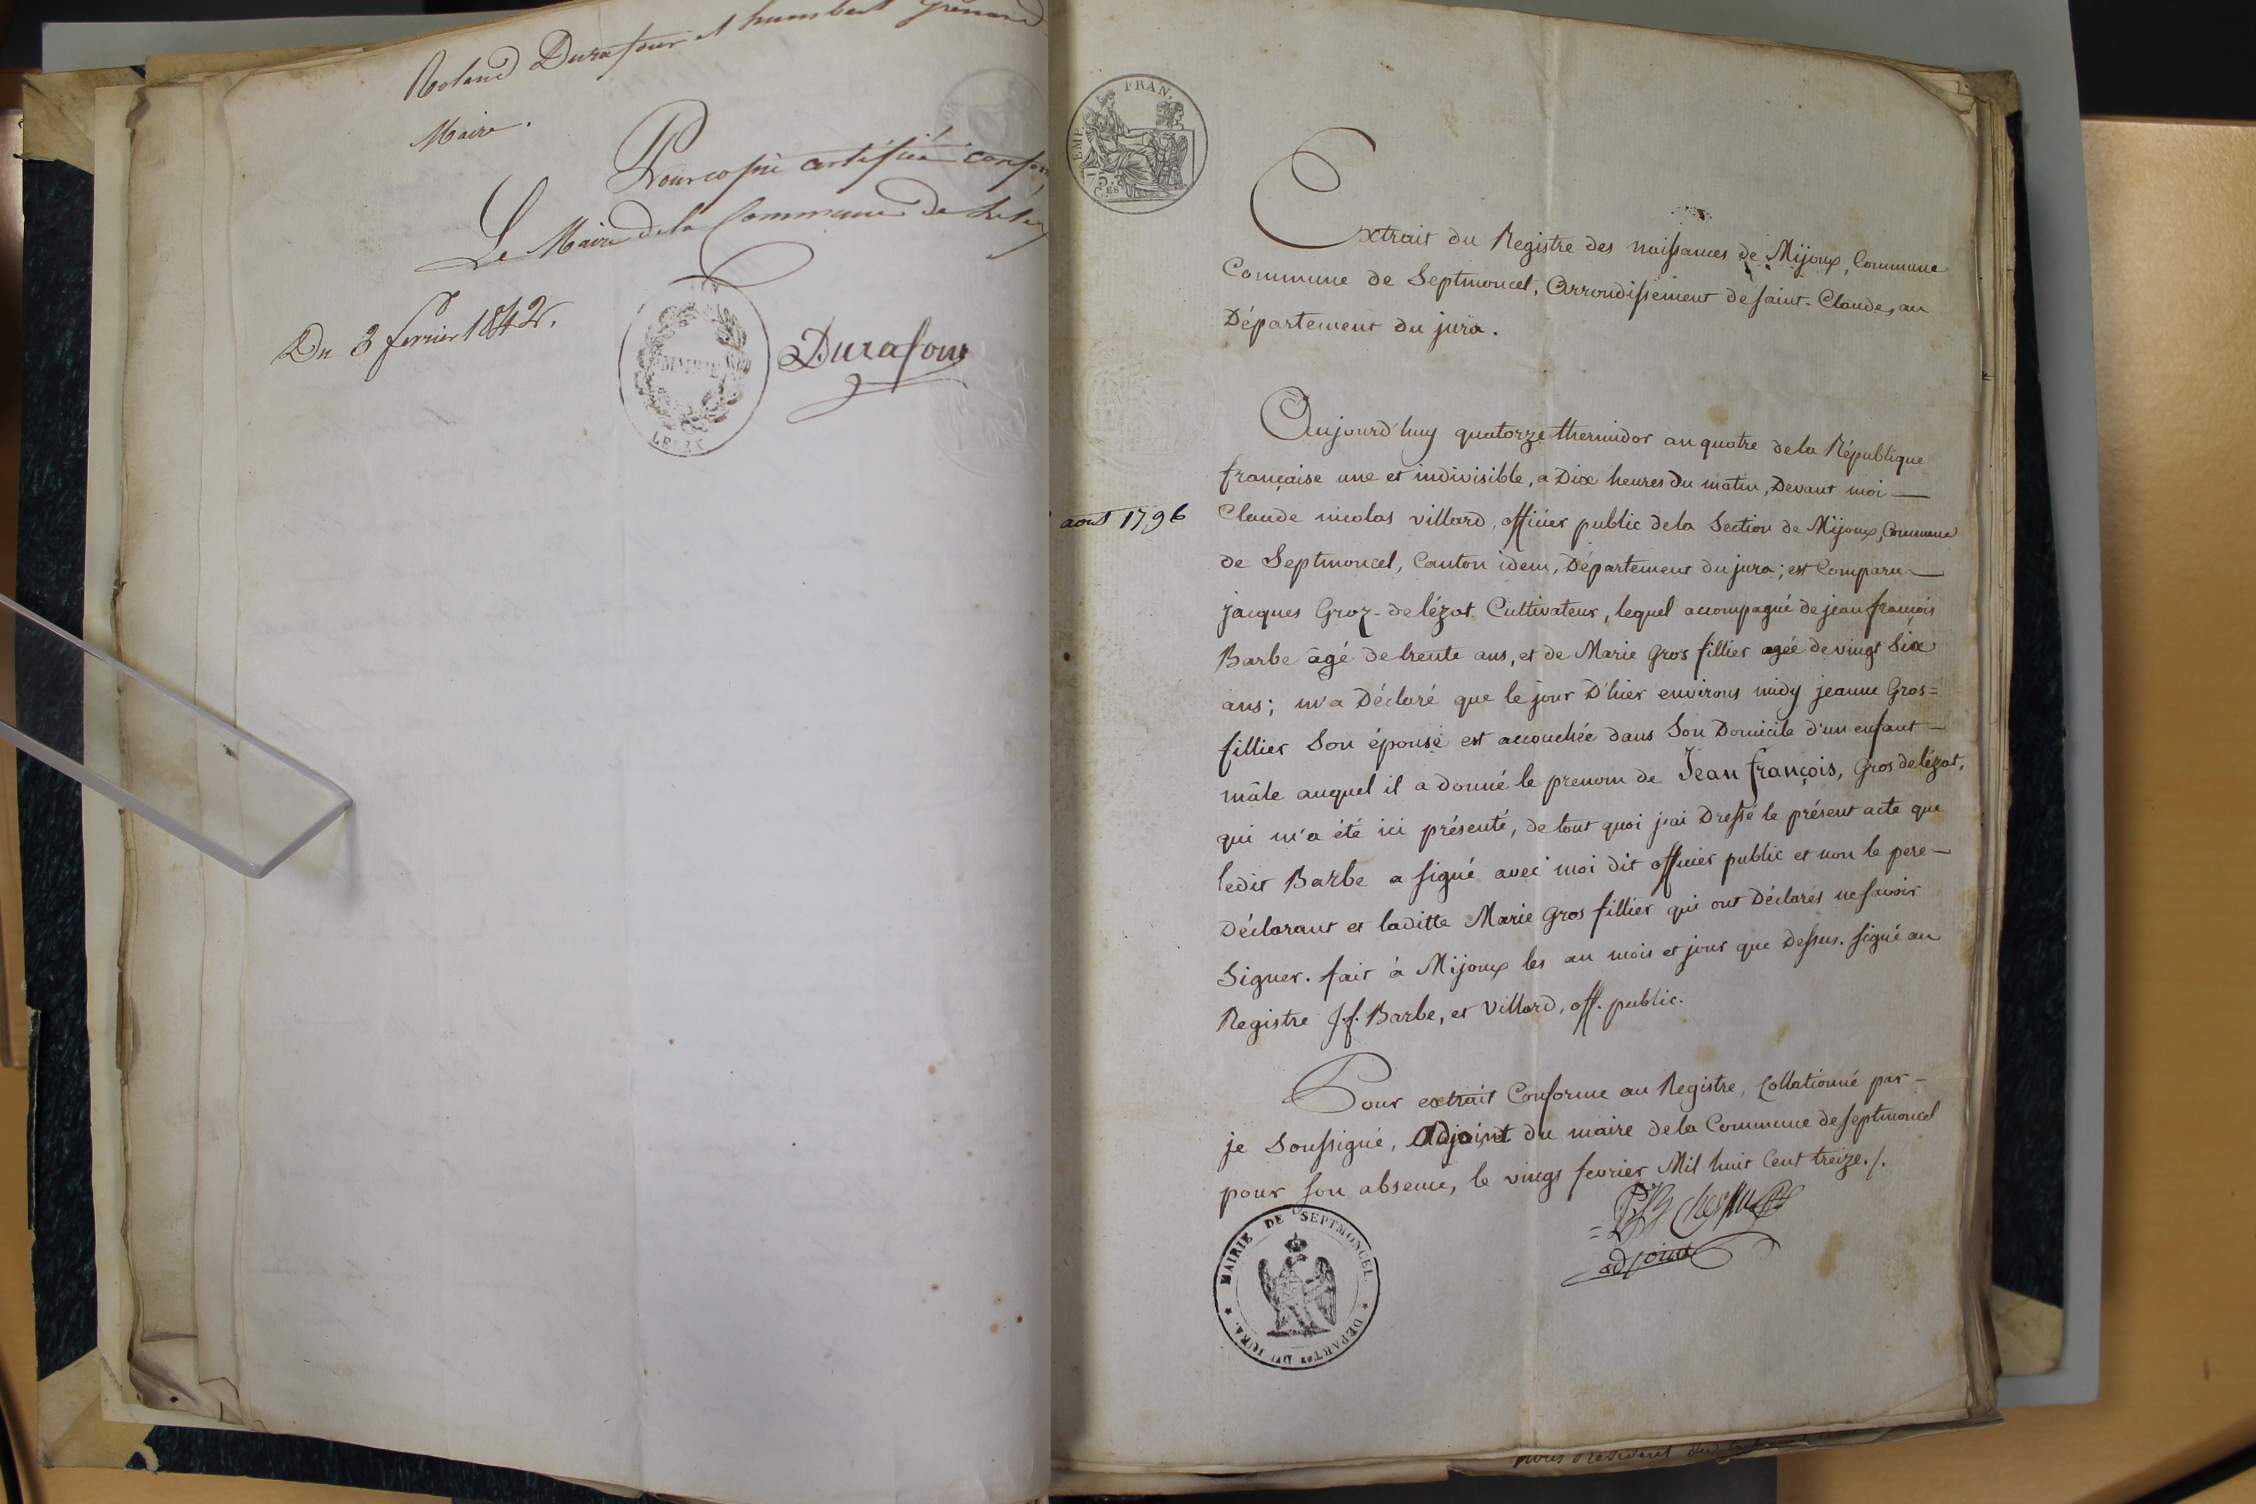 Roland Durafour et humbert Grenard
Maire.
Pour copie certifiée confor
Le Maire de la Commune de Lele
Du 3 fevrier 1842.
MAIRIE
LELEX
Durafour
TIMB. EMP. FRAN.
5 CES
Extrait du Registre des naissances de Mijoux, Commune
Commune de Septmoncel, Arrondissement de Saint-Claude, au
Département du jura.
Aujourd'huy quatorze thermidor an quatre de la République
française une et indivisible, a Dix heures du matin, Devant moi —
aout 1796
Claude nicolas villard, officier public de la Section de Mijoux, Commune
de Septmoncel, Canton idem, Département du jura; est Comparu —
jacques Groz-delézat Cultivateur, lequel accompagné de jean françois
Barbe âgé de trente ans, et de Marie Gros fillier agée de vingt Six
ans; m'a Déclaré que le jour D'hier environs midy jeanne Gros=
fillier Son épouse est accouchée dans Son Domicile d'un enfant —
mâle auquel il a donné le prenom de Jean françois, Gros delézat,
qui m'a été ici présenté, de tout quoi j'ai Dressé le présent acte que
ledit Barbe a signé avec moi dit officier public et non le pere —
Déclarant et laditte Marie Gros fillier qui ont Déclarés ne savoir
Signer. fait à Mijoux les an mois et jour que Dessus. signé au
Registre J.f. Barbe, et Villard, off. public.
Pour extrait Conforme au Registre, Collationné par —
je Soussigné, Adjoint du maire de la Commune de septmoncel
pour son absence, le vingt fevrier Mil huit Cent treize./.
adjoint
MAIRIE DE SEPTMONCEL. ★ DEPARTNT DU JURA. ★